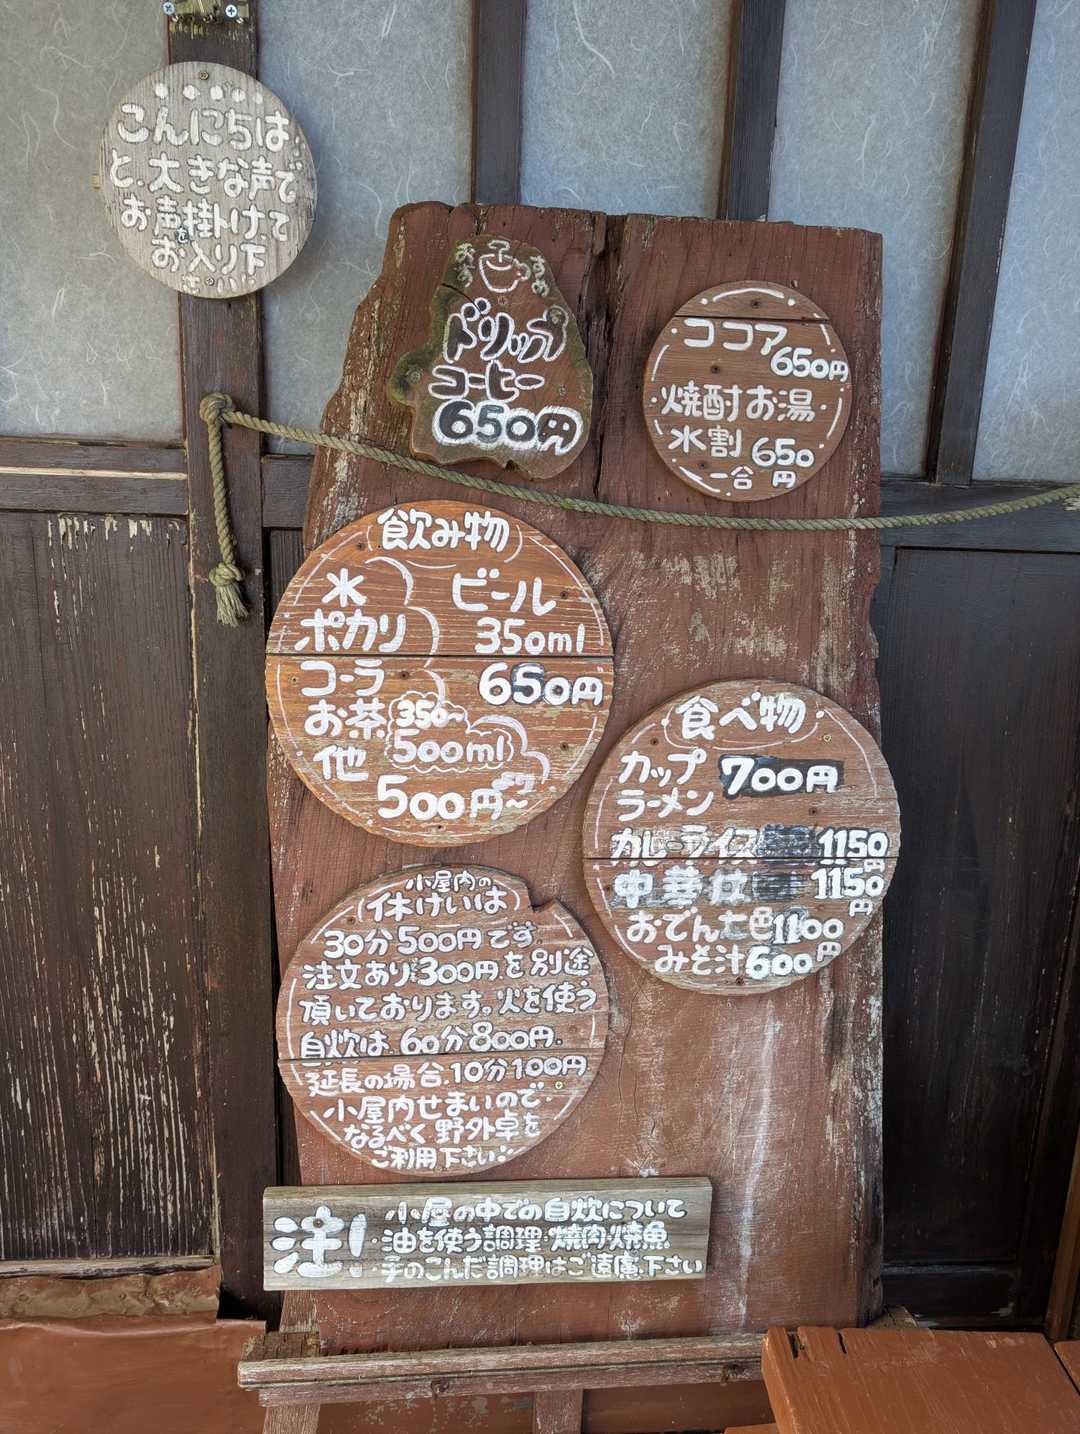 こんにちは
と、大きな声で
お声掛けて
お入り下
さい
おすすめ
ドリップ
コーヒー
650円
ココア
650円
焼酎お湯
水割 650
一合 円
飲み物
水
ポカリ
コーラ
お茶
他
ビール
350ml
650円
350~
500ml
500円~
食べ物
カップ
ラーメン
700円
カレーライス 1150円
中華丼 1150円
おでん七色 1100円
みそ汁 600円
小屋内の
休けいは
30分500円です。
注文あり300円を別途
頂いております。火を使う
自炊は、60分800円。
延長の場合、10分100円
小屋内せまいので
なるべく野外卓を
ご利用下さい
注!
小屋の中での自炊について
・油を使う調理・焼肉・焼魚
・手のこんだ調理はご遠慮下さい